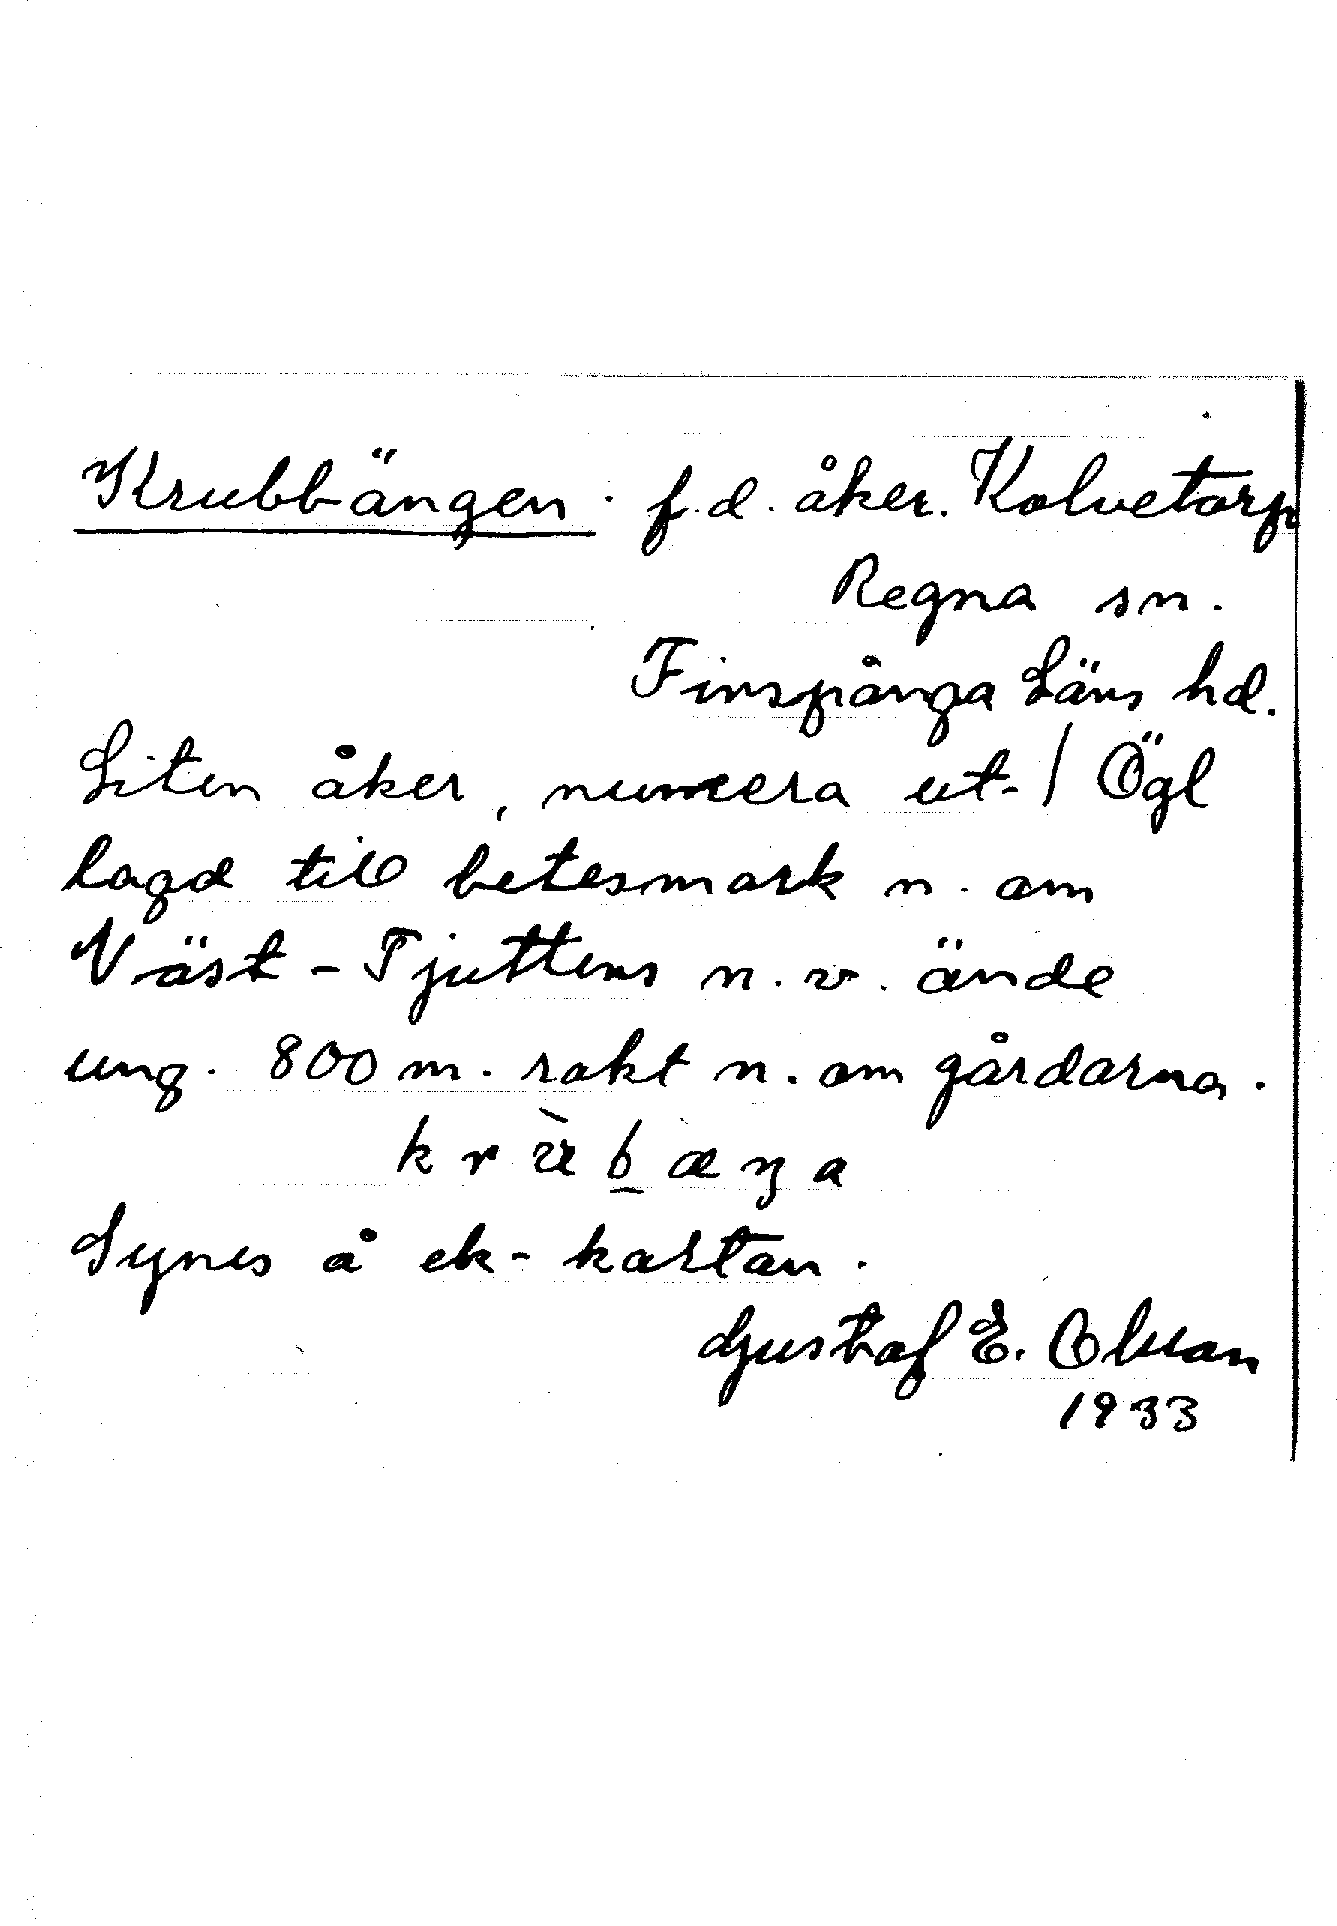 Krubbängen. f.d. åker. Kolvetorp
Regna sn.
Finspånga Läns hd.
Liten åker, numera ut- / Ögl
lagd till betesmark n. om
Väst-Tjuttens n.v. ände
ung. 800 m. rakt n. om gårdarna.
Synes å ek-kartan.
Gustaf E.
1933